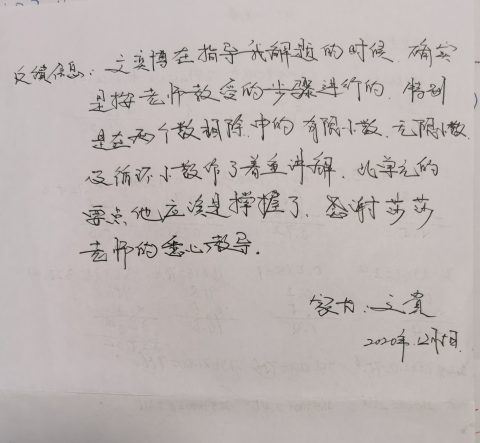 反馈信息：文奕博在指导我解题的时候，确实
是按老师教受的步骤进行的，特别
是在两个数相除中的有限小数，无限小数
及循环小数作了着重讲解，此单元的
要点他应该是撑握了，感谢莎莎
老师的悉心教导。
家长：文贵
2020年12月5日